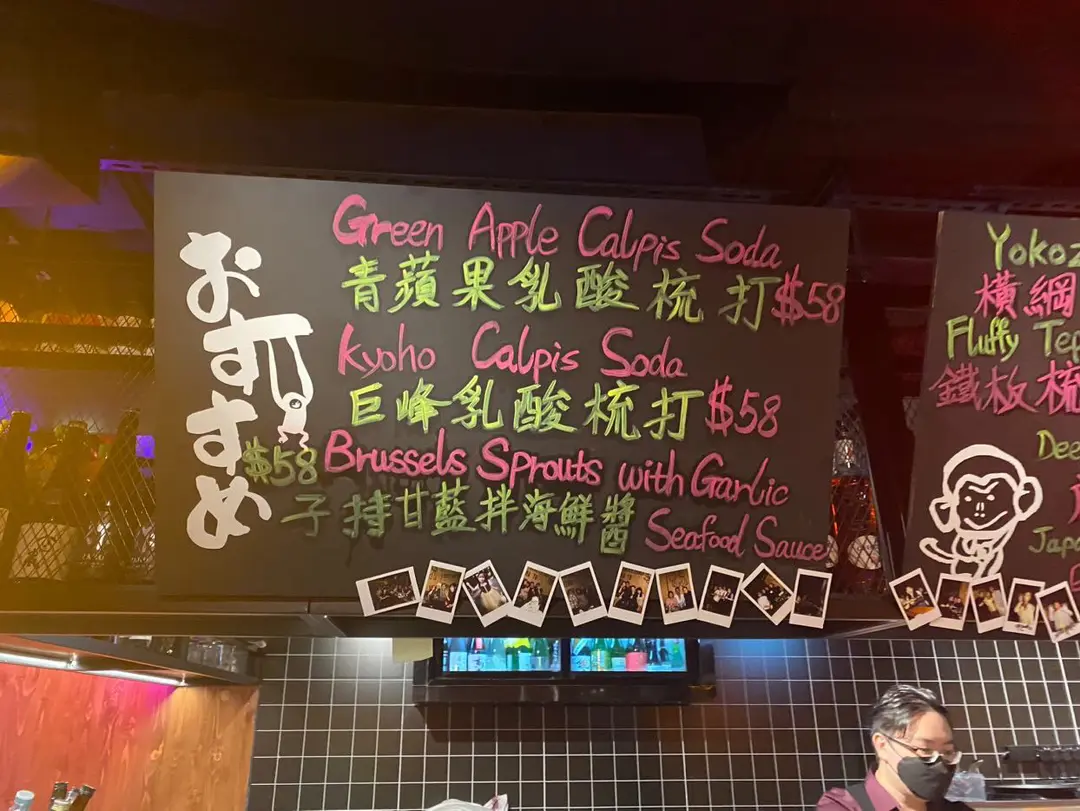 おすすめ
Green Apple Calpis Soda
青蘋果乳酸梳打 $58
Kyoho Calpis Soda
巨峰乳酸梳打 $58
$58 Brussels Sprouts with Garlic
子持甘藍拌海鮮醬 Seafood Sauce
橫綱
Fluffy
鐵板梳